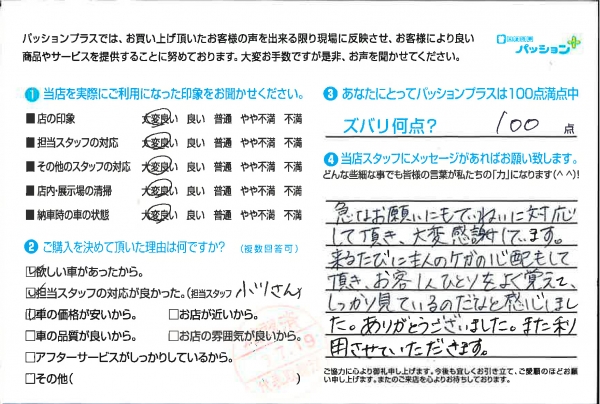 パッションプラスでは、お買い上げ頂いたお客様の声を出来る限り現場に反映させ、お客様により良い
商品やサービスを提供することに努めております。大変お手数ですが是非、お声を聞かせてください。
パッション
① 当店を実際にご利用になった印象をお聞かせください。
■店の印象 大変良い 良い 普通 やや不満 不満
■担当スタッフの対応 大変良い 良い 普通 やや不満 不満
■その他のスタッフの対応 大変良い 良い 普通 やや不満 不満
■店内・展示場の清掃 大変良い 良い 普通 やや不満 不満
■納車時の車の状態 大変良い 良い 普通 やや不満 不満
② ご購入を決めて頂いた理由は何ですか? (複数回答可)
□欲しい車があったから。
□担当スタッフの対応が良かった。(担当スタッフ 小川さん)
□車の価格が安いから。 □お店が近いから。
□車の品質が良いから。 □お店の雰囲気が良いから。
□アフターサービスがしっかりしているから。
□その他( )
③ あなたにとってパッションプラスは100点満点中
ズバリ何点? 100 点
④ 当店スタッフにメッセージがあればお願い致します。
どんな些細な事でも皆様の言葉が私たちの「力」になります(^^)!
急なお願いにもていねいに対応
して頂き、大変感謝しています。
来るたびに主人のケガの心配もして
頂き、お客1人ひとりをよく覚えて、
しっかり見ているのだなと感じまし
た。ありがとうございました。また利
用させていただきます。
ご協力に心より御礼申し上げます。今後も宜しくお引き立て、ご愛顧のほどお願
い申し上げます。またのご来店を心よりお待ちしております。